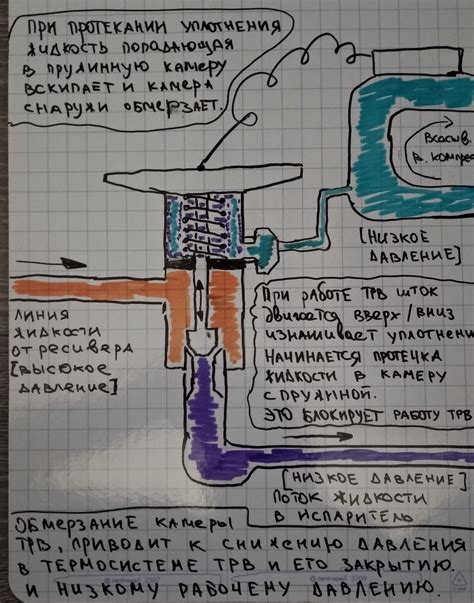 ПРИ ПРОТЕКАНИИ УПЛОТНЕНИЯ
ЖИДКОСТЬ ПОПАДАЮЩАЯ
В ПРУЖИННУЮ КАМЕРУ
ВСКИПАЕТ И КАМЕРА
СНАРУЖИ ОБМЕРЗАЕТ.
Всасыв.
в. компрес
[НИЗКОЕ
ДАВЛЕНИЕ]
ЛИНИЯ
ЖИДКОСТИ
ОТ РЕСИВЕРА
[ВЫСОКОЕ
ДАВЛЕНИЕ]
ПРИ РАБОТЕ ТРВ ШТОК
ДВИГАЕТСЯ ВВЕРХ/ВНИЗ
ИЗНАШИВАЕТ УПЛОТНЕНИ
НАЧИНАЕТСЯ ПРОТЕЧКА
ЖИДКОСТИ В КАМЕРУ
С ПРУЖИНОЙ.
ЭТО БЛОКИРУЕТ РАБОТУ ТРВ
[НИЗКОЕ ДАВЛЕНИЕ]
ПОТОК ЖИДКОСТИ
В ИСПАРИТЕЛЬ
ОБМЕРЗАНИЕ КАМЕРЫ
ТРВ, ПРИВОДИТ К СНИЖЕНИЮ ДАВЛЕНИЯ
В ТЕРМОСИСТЕМЕ ТРВ И ЕГО ЗАКРЫТИЮ.
И НИЗКОМУ РАБОЧЕМУ ДАВЛЕНИЮ.